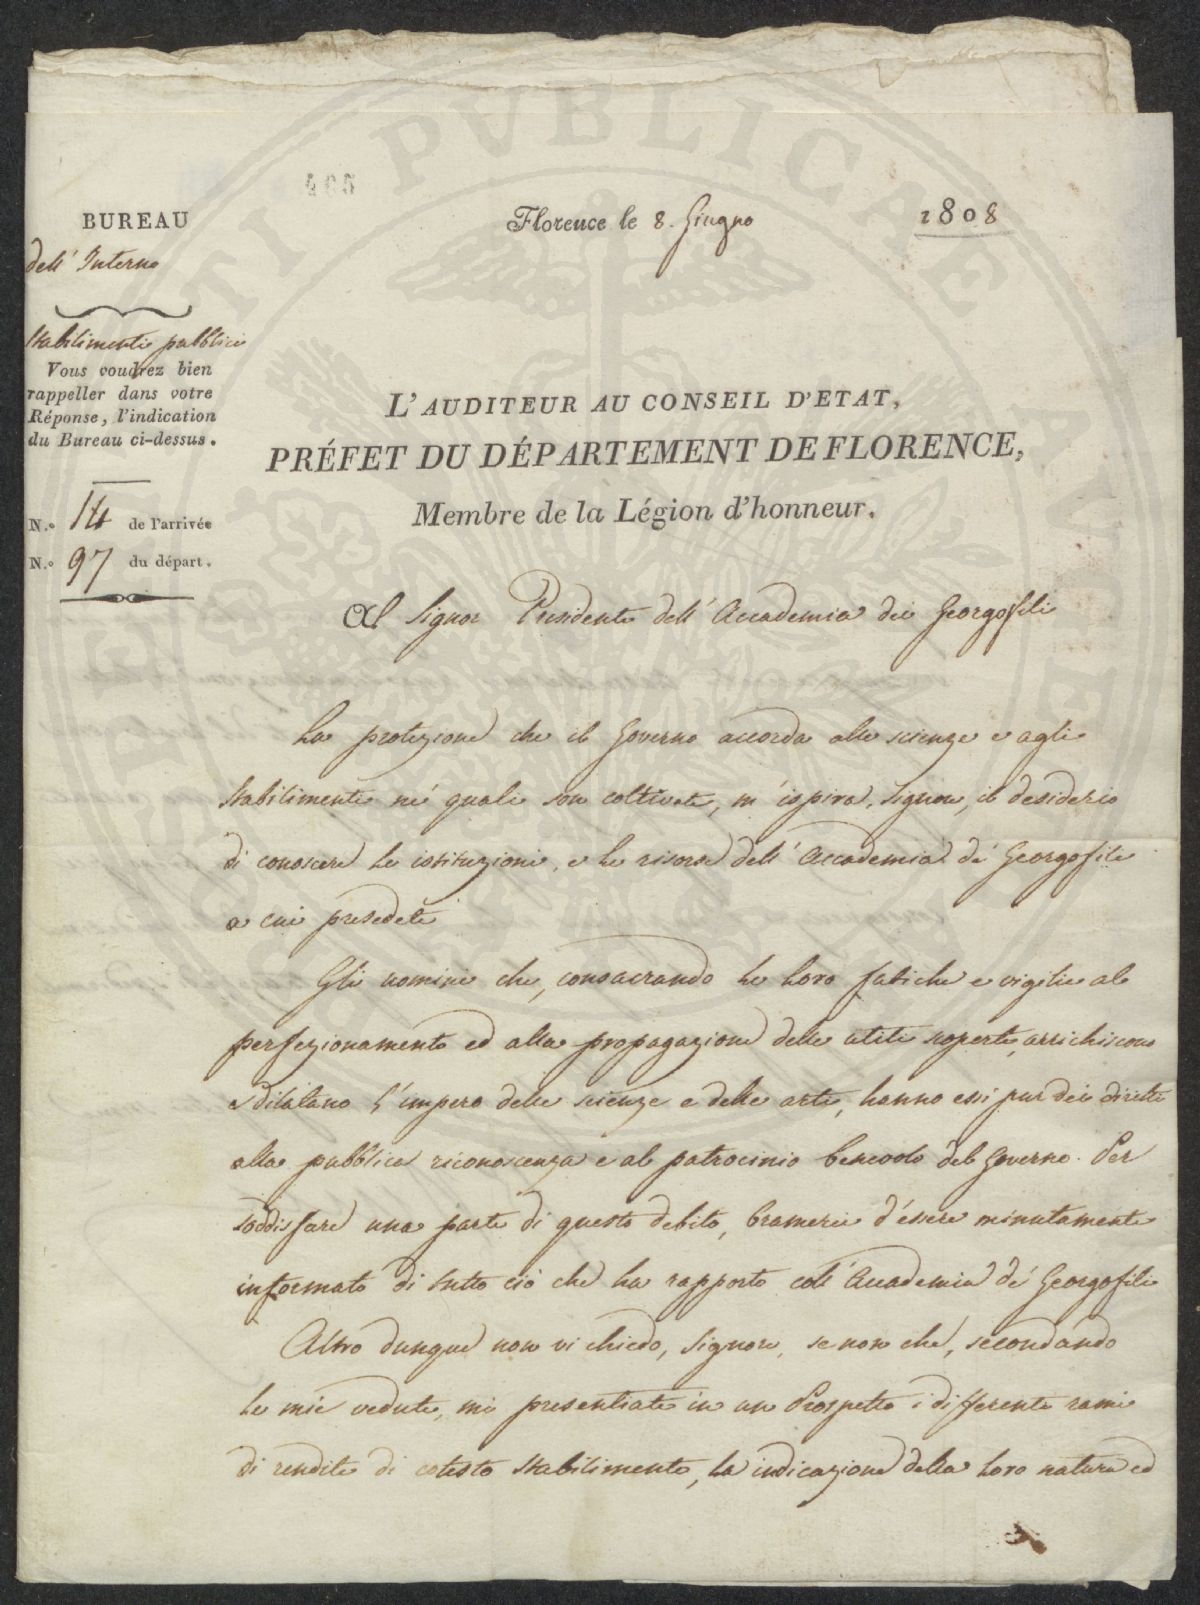 405
BUREAU
dell' Interno
Stabilimenti pubblici
Vous voudrez bien
rappeller dans votre
Réponse, l'indication
du Bureau ci-dessus.
N.o 14 de l'arrivée
N.o 97 du départ.
Florence le 8. Giugno 1808
L'AUDITEUR AU CONSEIL D'ETAT,
PRÉFET DU DÉPARTEMENT DE FLORENCE,
Membre de la Légion d'honneur.
Al Signor Presidente dell' Accademia dei Georgofili
La protezione che il Governo accorda alle scienze e agli
stabilimenti ne' quali son coltivate, m'ispira, Signore, il desiderio
di conoscere le istituzioni, e le risorse dell' Accademia de' Georgofili
a cui presedete
Gli uomini che, consacrando le loro fatiche e vigilie al
perfezionamento ed alla propagazione delle utili scoperte, arrichiscono
e dilatano l'impero delle scienze e delle arti, hanno essi pur dei diritti
alla pubblica riconoscenza e al patrocinio benevolo del Governo. Per
soddisfare una parte di questo debito, bramerei d'essere minutamente
informato di tutto ciò che ha rapporto coll' Accademia de' Georgofili
Altro dunque non vi chiedo, Signore, se non che, secondando
le mie vedute, mi presentiate in un Prospetto i differenti rami
di rendite di cotesto stabilimento, la indicazione della loro natura ed
PUBLICAE